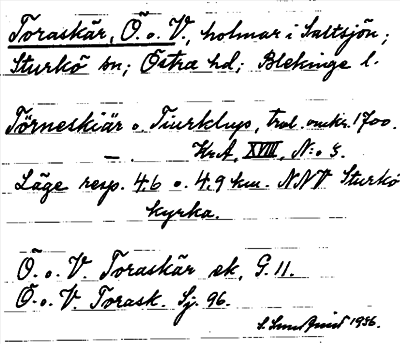 Toraskär, Ö. o. V., holmar i Saltsjön;
Sturkö sn; Östra hd; Blekinge l.
Törneskiär o. Tiurklup, trol. omkr. 1700.
— KrA, XVIII, N:o 3.
Läge resp. 4.6 o. 4.9 km. NNV Sturkö
kyrka.
Ö. o. V. Toraskär ek, G. 11.
Ö. o. V. Torask. Sj. 96.
1936.